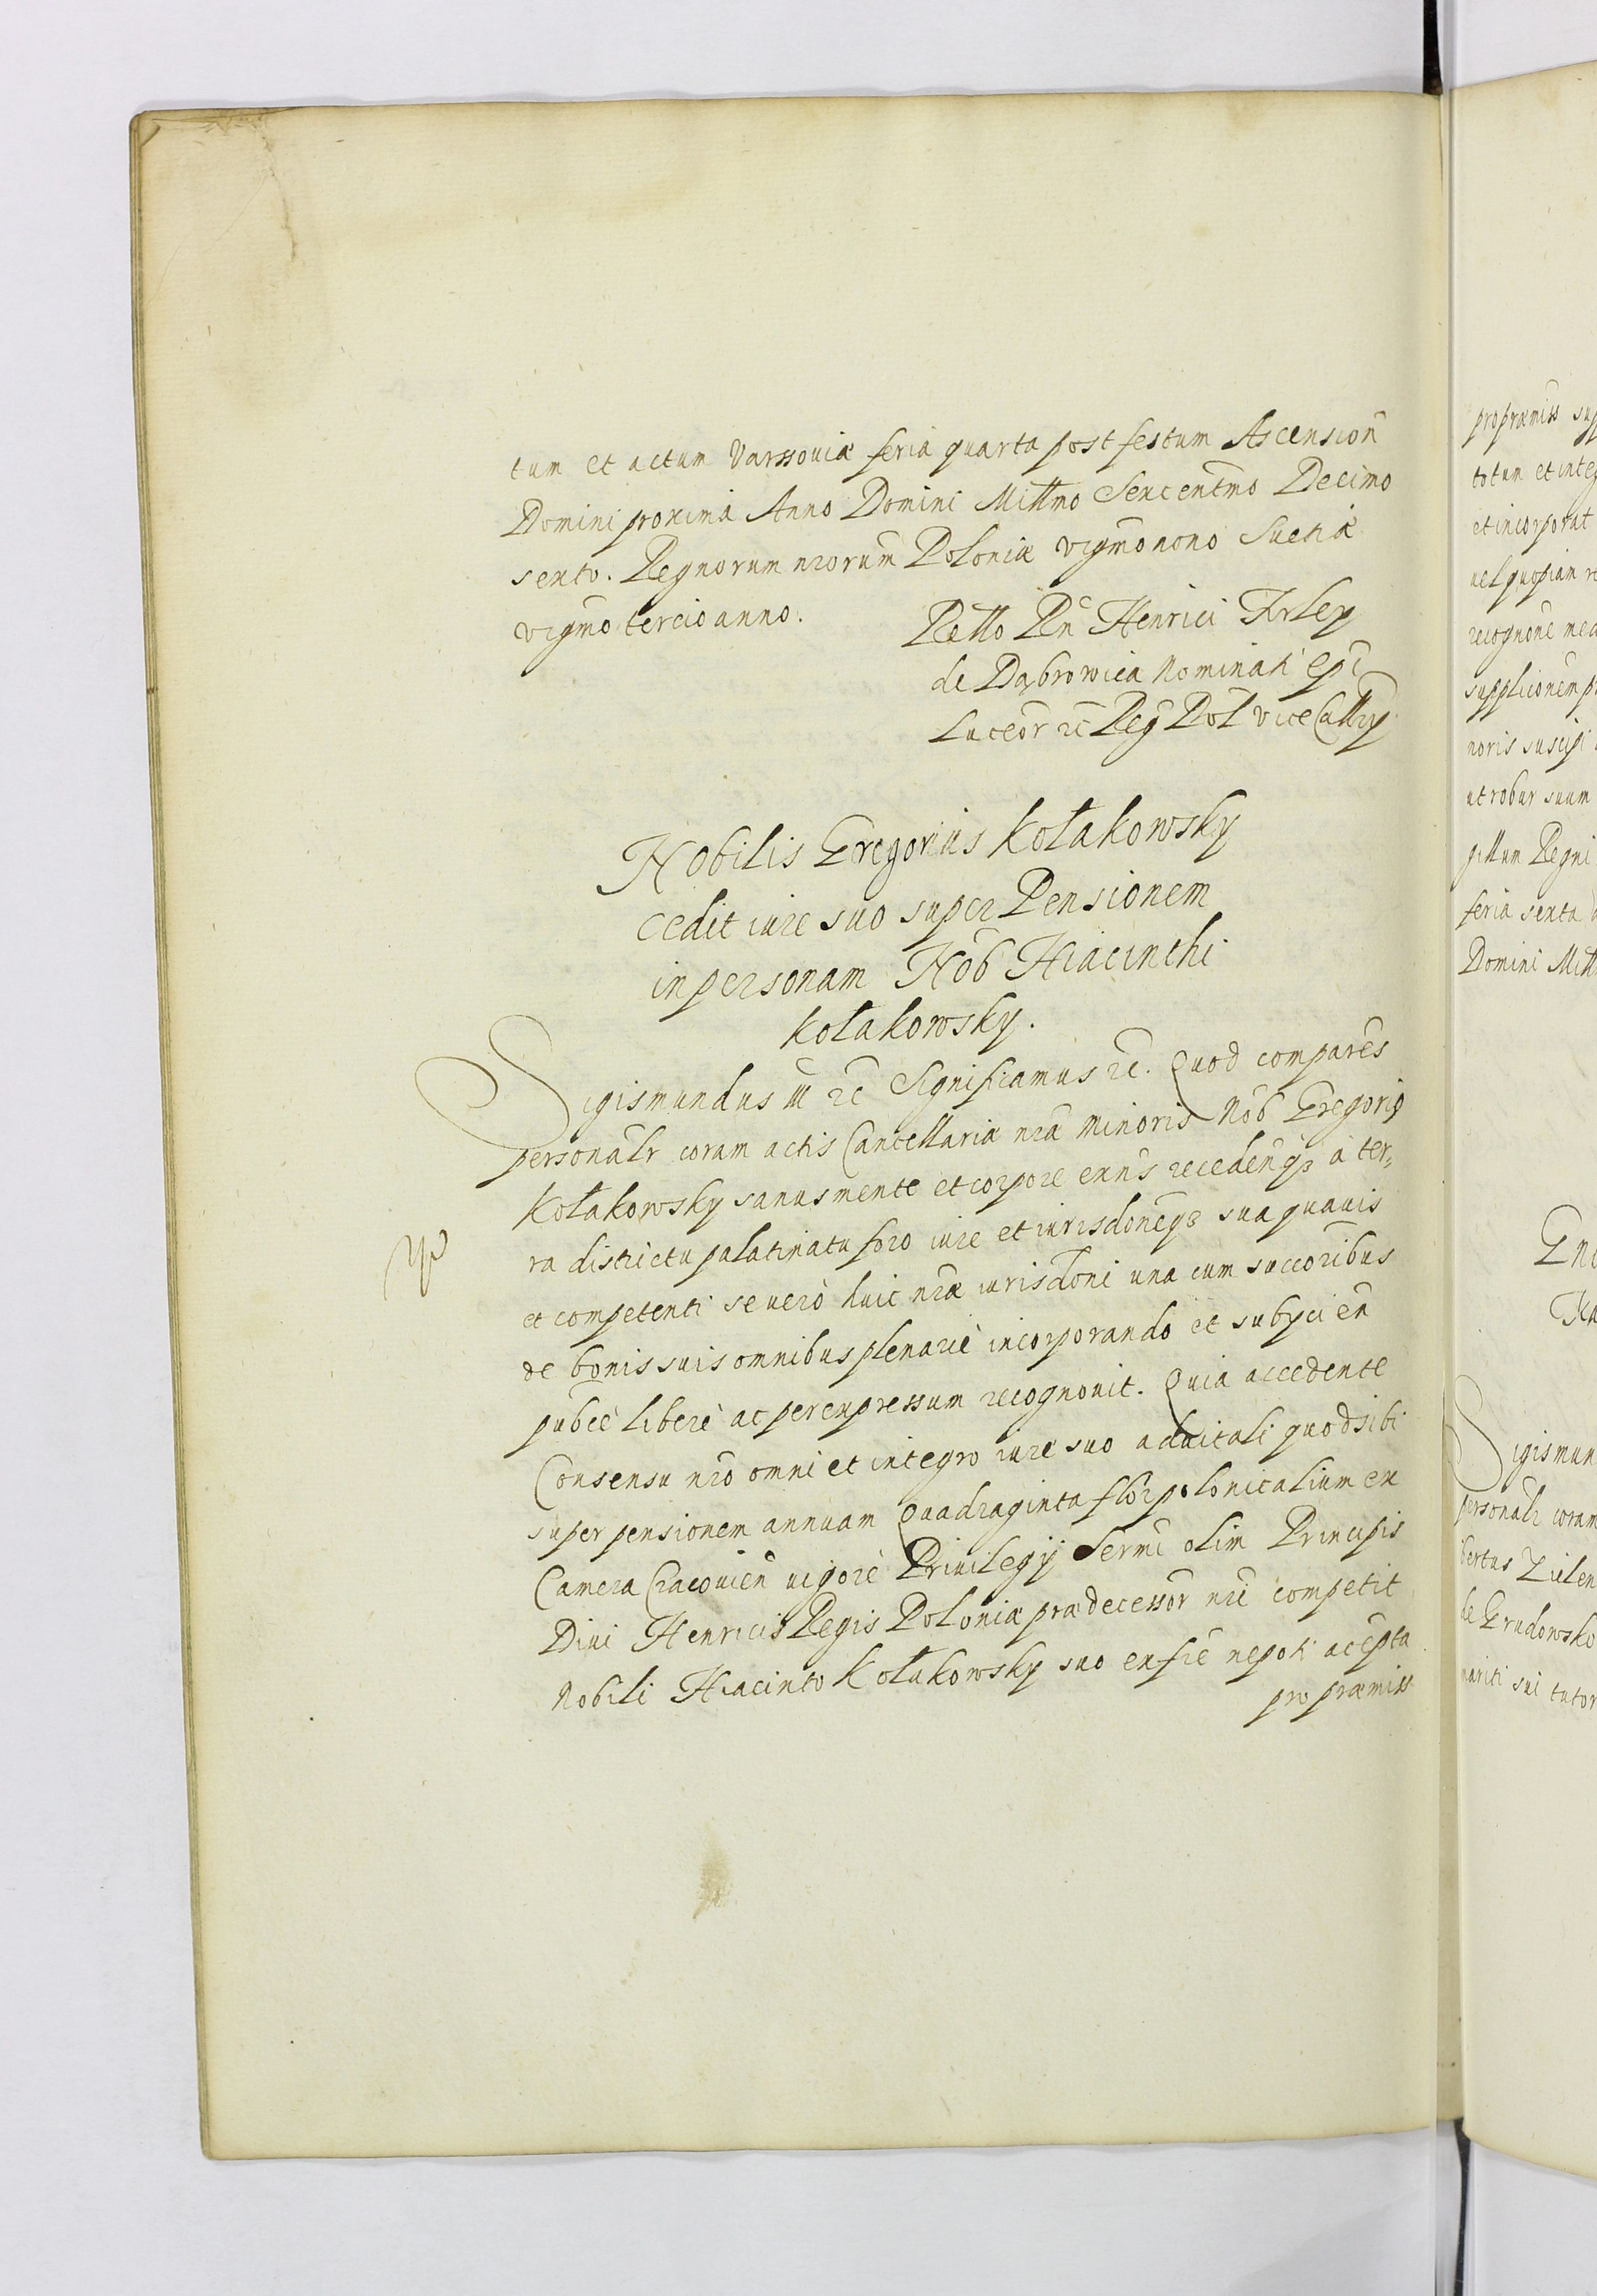 tum et actum Varssouiæ feria quarta post festum Ascension̄
Domini proxima Anno Domini Millmo Sexcentm̄o Decimo
sexto. Regnorum nr̄orum Poloniæ vigm̄o nono Suetiæ
vigm̄o tercio anno.
Rel̄lo Rn̄ Henrici Firley
de Dąbrowica Nominati Ep̄i
Luceōr ꝛc̄ Reḡ Pol̄ viceCanl̄lrij
Nobilis Gregorius Kołakowsky
cedit iure suo super Pensionem
in personam Nob̄ Hiacinthi
Kołakowsky.
Sigismundus III ꝛc̄ Significamus ꝛc̄. Quod comparēs
personal̄r coram actis Cancellariæ nr̄æ minoris Nob̄ Gregoriꝯ
Kołakowsky sanus mente et corpore exn̄s recedenq̄ꝫ à ter„
ra districtu palatinatu foro iure et iurisdoneq̄ꝫ sua quauis
et competenti se uerò huic nr̄æ iurisdōni una cum succōribus
de bonis suis omnibus plenariè incorporando et subyciēn
pub̄cè liberè ac per expressum recognouit. Quia accedente
Consensu nr̄o omni et integro iure suo aduitali quod sibi
super pensionem annuam Quadraginta flōr polonicalium ex
Camera Cracouien̄ uigore Priuilegij Serm̄i olim Principis
Diui Henricis Regis Poloniæ prædecessōr nr̄i competit
Nobili Hiacinto Kołakowsky suo ex fr̄e nepoti acc̄pta
pro præmiss
pro præmiss
totum et
et incorporat
uel quopiam
recognonē
supplicōnem
noris suscipi
ut robur suum
gillum Regni
feria sexta
Domini
Sigismun
personal̄r coram
bertus Zielen
de Grudowsko
mariti sui tutor